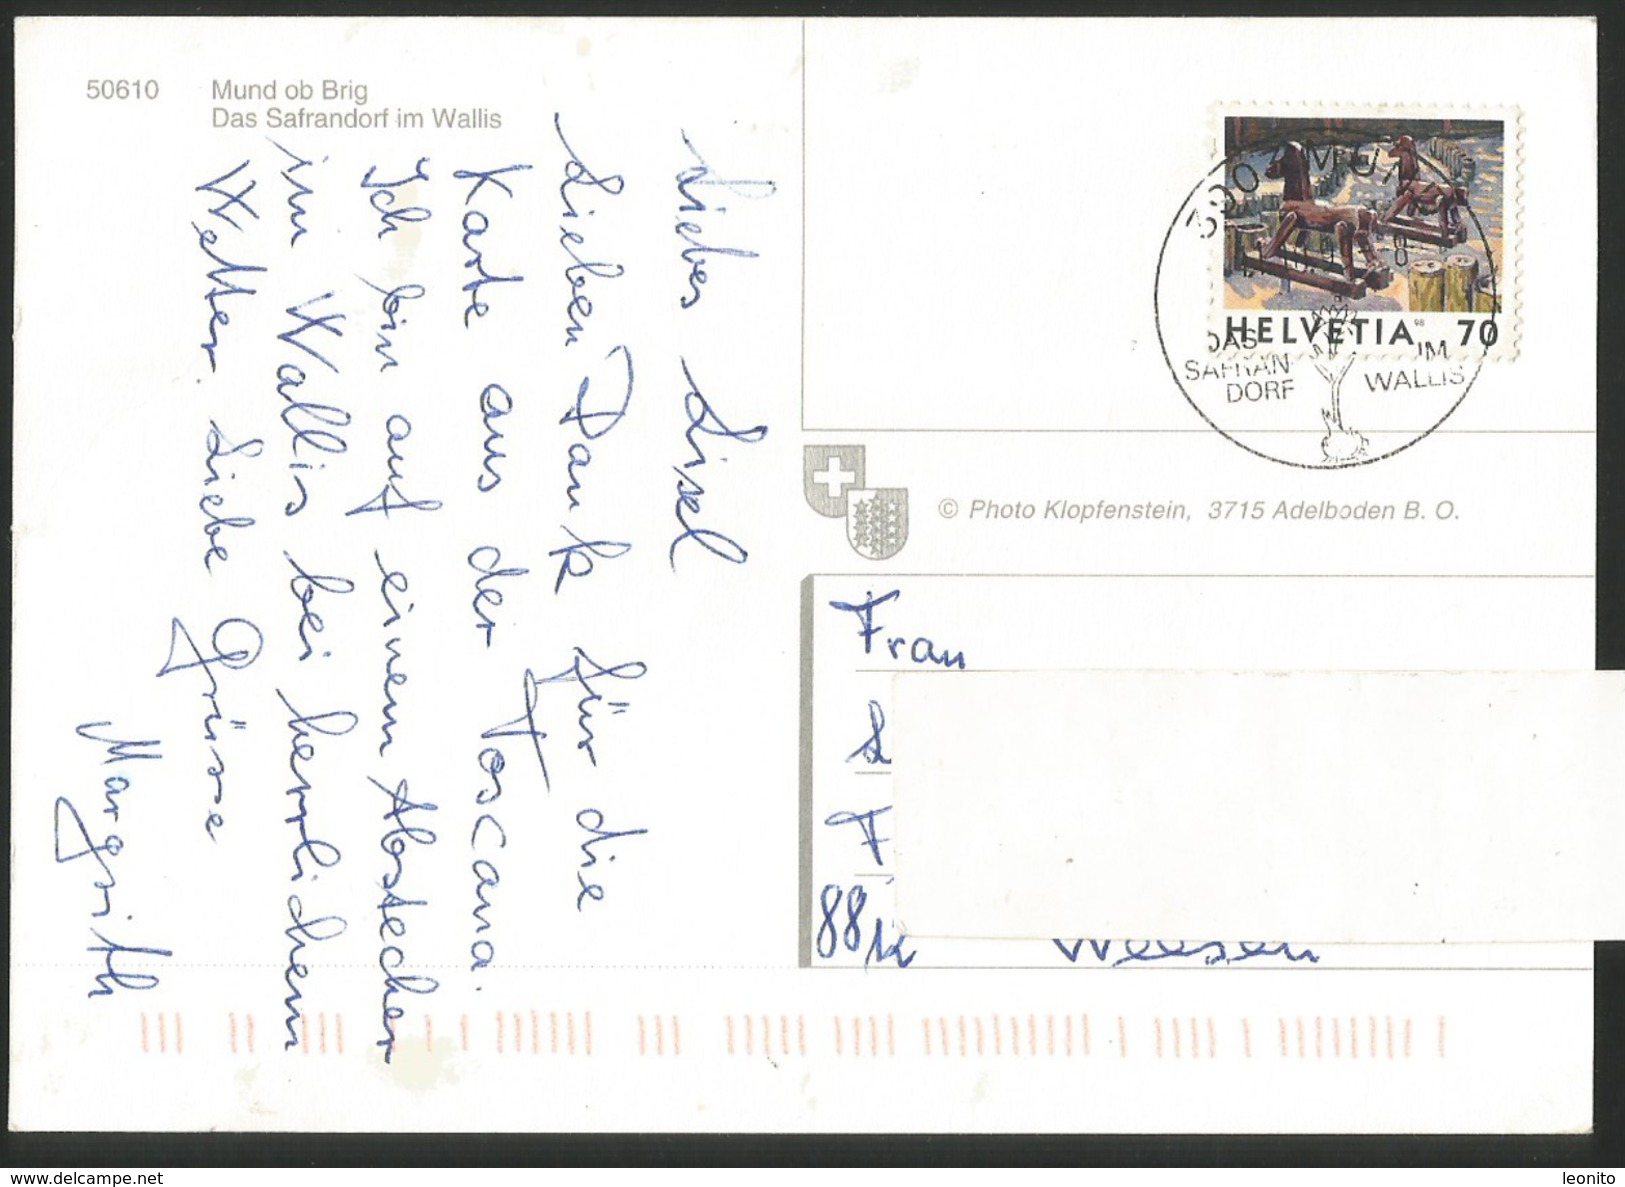 50610 Mund ob Brig
Das Safrandorf im Wallis
Liebes Lisel
Lieben Dank für die
Karte aus der Toscana.
Ich bin auf einem Abstecher
im Wallis bei herrlichem
Wetter. Liebe Grüsse
Margrith
HELVETIA 98 70
DAS SAFRAN-DORF IM WALLIS
© Photo Klopfenstein, 3715 Adelboden B. O.
Frau
Weesen
leonito